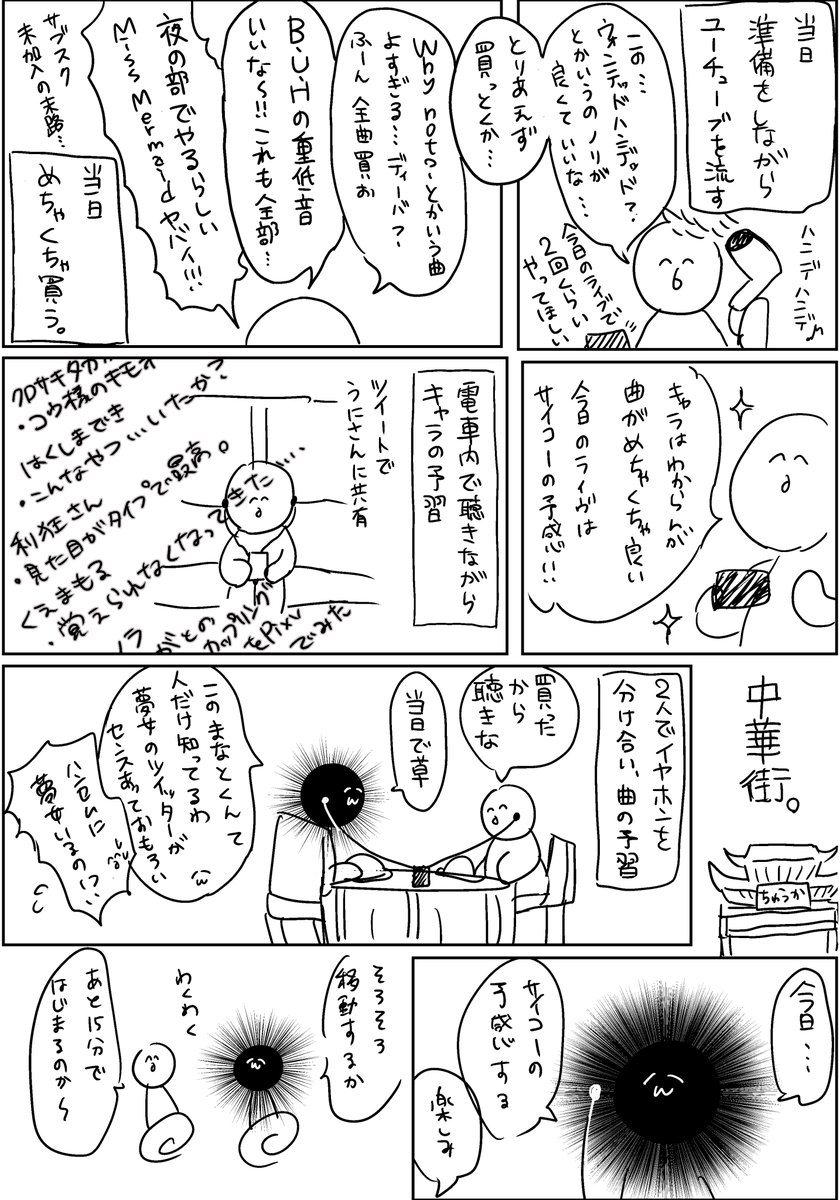 当日
準備をしながら
ユーチューブを流す
ハンデハンデ♪
この…
ウォンテッドハンデッド?
とかいうのノリが
良くていいな…
今日のライブで
2回くらい
やってほしい
とりあえず
買っとくか…
Why not〜とかいう曲
よすぎる…ディーバ?
ふーん全曲買お
B.U.Hの重低音
いいな〜!!これも全部…
夜の部でやるらしい
Miss Mermaidヤバイ!!!
サブスク
未加入の末路…
当日
めちゃくちゃ買う。
キャラはわからんが
曲がめちゃくちゃ良い
今日のライヴは
サイコーの予感!!
電車内で聴きながら
キャラの予習
ツイートで
うにさんに共有
クロサキタカ
・コウ様のキモオ
はくしまでき
・こんなやつ…いたか?
利狂さん
・見た目がタイプで最高。
くえまもる
・覚えられなくなってきた…
がとの
カップリング
をPixiv
でみた
中華街。
ちゅうか
2人でイヤホンを
分け合い、曲の予習
買った
から
聴きな
当日で草
このまなとくんて
人だけ知ってるわ
夢女のツイッターが
センスあっておもろい
ハンセムに
夢女いるの!?
今日…
サイコーの
予感じする
楽しみ
そろそろ
移動するか
わくわく
あと15分で
はじまるのか〜